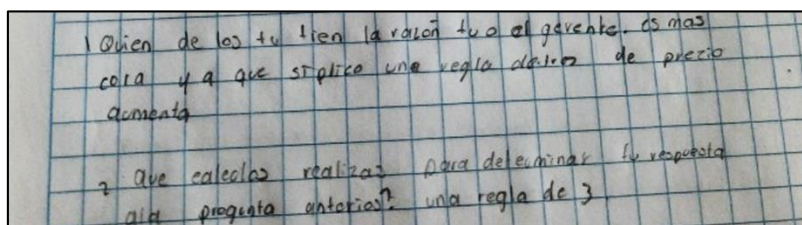 1 Quien de los tu tien la razon tu o el gerente. es mas
cara y a que siplico una regla de de precio
aumenta
2 que calculos realizas para determinar tu respuesta
ala pregunta anterios? una regla de 3